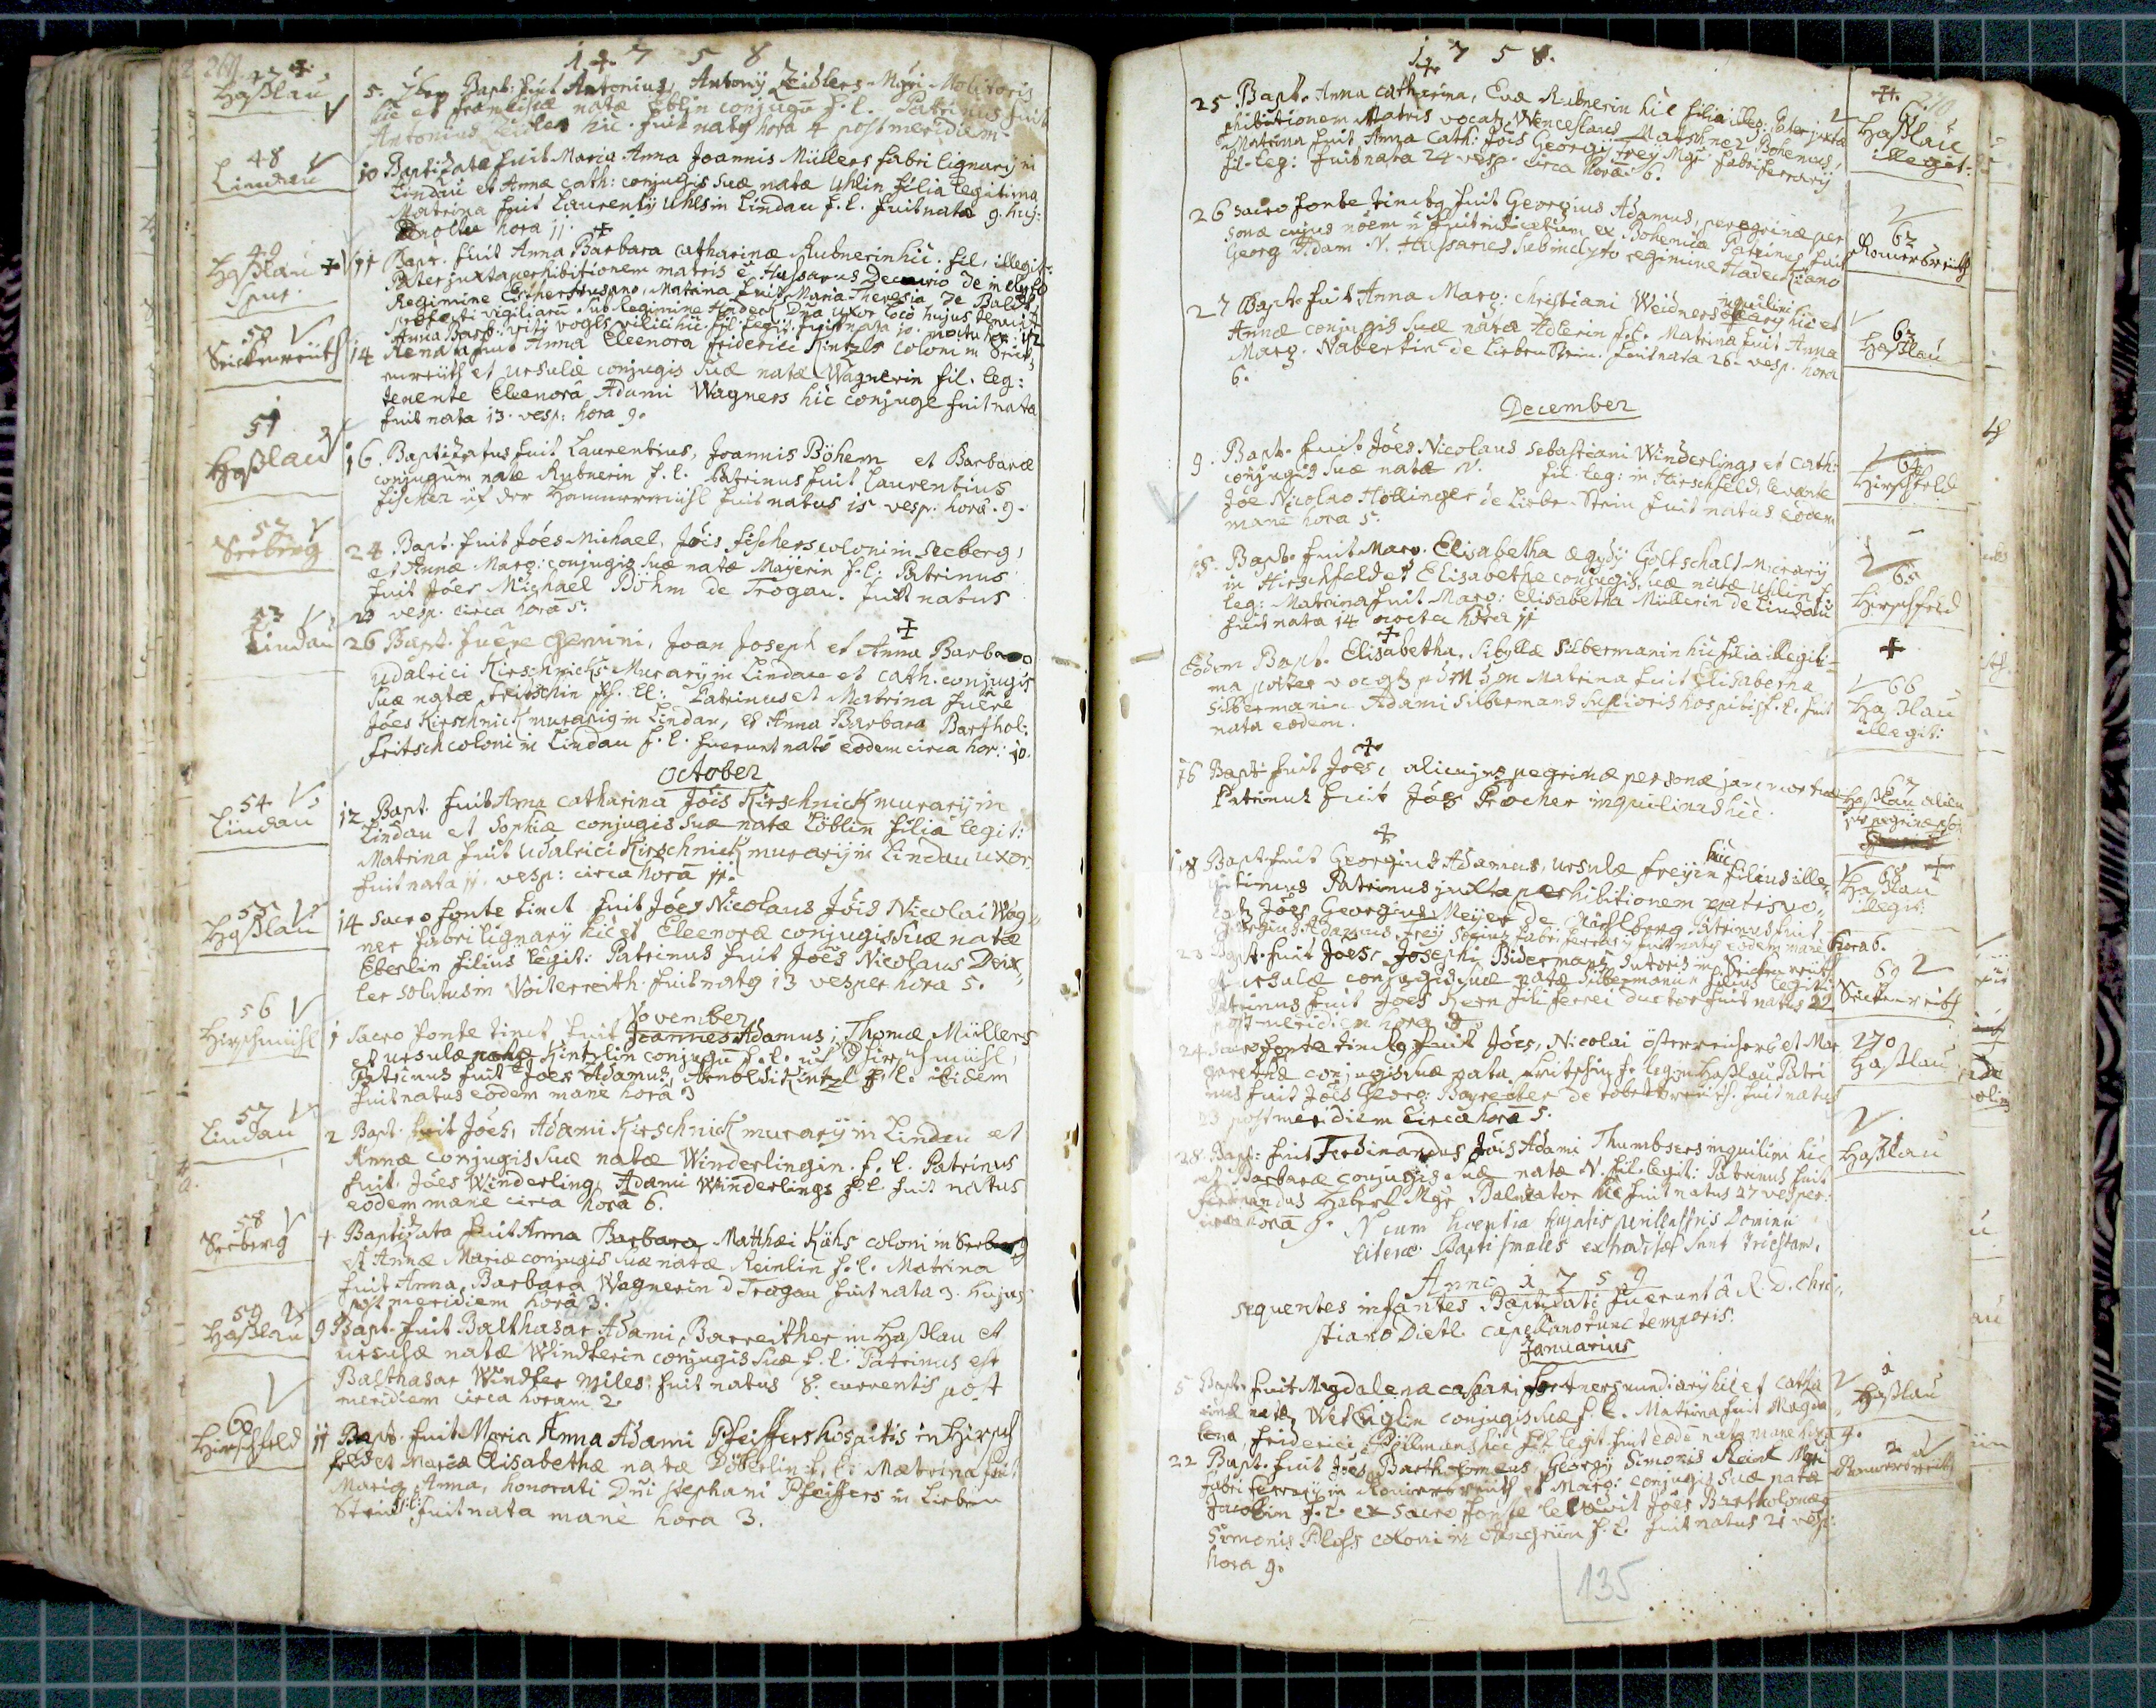 1 7 5 8
47
Haßlau
5. 7ber Bapt: fuit Antonius, Antonÿ Zidlers Mgri Molitoris
hic et Franciscæ natæ Eblin conjugū f. l. Patrinus fuit
Antonius hic. fuit natg hora 4 post meridiem
48
Lindau
10 Baptizata fuit Maria Anna Joannis Müllers fabri lignarÿ in
Lindau et Annæ Cath: conjugis suæ natæ Uhlin filia legitima
Matrina fuit Laurentÿ Uhls in Lindau f. l. fuit nata 9. huj:
noctu hora 11.
49
Haßlau
Spur.
11 Bapt. fuit Anna Barbara Catharinæ Rubnerin hic. fil. illegit:
Pater juxta perhibitionem matris è Hussarus Decurio de inclyto
Regimine Esther, Matrina fuit Maria Theresia de
præfecti vigiliarū sub Regimine Hadeck Dna uxor loco hujus tenuit
Anna Barb. Viti Vogls vilici hic fil. legit. fuit nata 10. noctu hor: 12
50
Seickenreüth
14 Renata fuit Anna Eleonora Friderici Kintzls coloni in Seick,
enreüth et Ursulæ conjugis suæ natæ Wagnerin fil. leg:
tenente Eleonora Adami Wagners hic conjuge fuit nata
fuit nata 13. vesp: hora 9.
51
Haßlau
16. Baptizatus fuit Laurentius, Joannis Böhem et Barbaræ
conjugum natæ Rubnerin f. l. Patrinus fuit Laurentius
Fischer uf der Hammermühl fuit natus 15 vesp. horâ. 9.
52
Seeberg
24. Bapt. fuit Jões Michael, Jõis Fischers coloni in Seeberg,
et Annæ Marg: conjugis suæ natæ Mayerin f. l. Patrinus
fuit Jões Michael Böhm de Trogau. fuit natus
23 vesp. circa horā 5.
53
Lindau
26 Bapt. fuēre Gemini, Joan Joseph et Anna Barbara
Udalrici Kirschnicks Murarÿ in Lindau et Cath. conjugis
suæ natæ Fritschin ff. ll: Patrinus et Matrina fuēre
Jões Kirschnick murarig in Lindau, et Anna Barbara Barthol:
Fritsch coloni in Lindau f. l. fuerunt nati eodem circa hor: 10.
October
54
Lindau
12 Bapt. fuit Anna Catharina Jõis Kirschnick murarÿ in
Lindau et Sophiæ conjugis suæ natæ Löblin filia legit:
Matrina fuit Udalrici Kirschnick murarÿ in Lindau uxor
fuit nata 11. vesp: circa horā 11.
55
Haßlau
14 Sacro fonte tinct fuit Jões Nicolaus Jõis Nicolai Wag,
ner fabri lignarÿ hic et Eleonoræ conjugis suæ natæ
Eberlin filius legit: Patrinus fuit Jões Nicolaus Deix,
ler solutus in Voitersreith. fuit natg 13 vesper hora 5.
November
56
Hirschmühl
1 Sacro fonte tinct fuit Joannes Adamus, Thomæ Müllers
et Ursulæ natæ Kintzlin conjugū f. l. uf Hirschmühl,
Patrinus fuit Jões Adamus, Arnoldi Kintzl f. l. ibidem
fuit natus eodem mane hora 3
57
Lindau
2 Bapt. fuit Jões, Adami Kirschnick murarÿ in Lindau et
Annæ conjugis suæ natæ Winderlingin. f. l. Patrinus
fuit. Jões Winderling, Adami Winderlings f. l. fuit natus
eodem mane circa horā 6.
58
Seeberg
4 Baptizata fuit Anna Barbara Matthæi Kühs coloni in Seeberg
et Annæ Mariæ conjugis suæ natæ Reinlin f. l. Matrina
fuit Anna Barbara Wagnerin d Trogau fuit nata 3. hujus
post meridiem hora 3.
59
Haßlau
9 Bapt. fuit Balthasar Adami Barreither in Haßlau et
Ursulæ natæ Windterin conjugis suæ f. l. Patrinus est
Balthasar Windter miles. fuit natus 8. currentis post
meridiem circa horam 2.
60
Hirschfeld
11 Bapt. fuit Maria Anna Adami Pfeiffers hospitis in Hirsch
feld et Mariæ Elisabethæ natæ Döberlin f. l. Matrina fuit
Maria Anna, honorati Dñi Stephani Pfeiffers in Lieben
Stein f. l. fuit nata mane hora 3.
1 7 5 8.
270
25 Bapt. Anna Catharina, Evæ Rubnerin hic filia illeg: Pater juxta
phibitionem Matris vocatg Wenceslaus Matshner Bohemus,
Matrina fuit Anna Cath: Jõis Georgi Freÿ Mgri fabri ferrarÿ
fil. leg: fuit nata 24 vesp. circa horā 6.
61
Haßlau
illegit.
26 Sacro fonte tinctg fuit Georgius Adamus, peregrinæ per
sonæ cujus nōem ñ fuit indicatum ex Bohemia Patrinus fuit
Georg Adam N. Hussarus sub inclyto regimine Hadeckiano
62
Romersreith
27 Bapt. fuit Anna Marg: Christiani Weidners inquilini hic et
Annæ conjugis suæ natæ Adlerin f. l. Matrina fuit Anna
Marg. Nabertin de Lieben Stein. fuit nata 26. vesp. hora
6.
63
Haßlau
December
9. Bapt. fuit Jões Nicolaus Sebastiani Winderlings et Cath:
conjugis suæ natæ N. fil. leg: in Hirschfeld, levante
Jõe Nicolao Höllinger de Lieben Stein fuit natus eodem
mane hora 5.
64
Hirschfeld
15. Bapt. fuit Marg. Elisabetha Ægidÿ Goltschalt Murarÿ
in Hirschfeld et Elisabethæ conjugis suæ natæ Uhlin f.
leg: Matrina fuit Marg: Elisabetha Müllerin de Lindau
fuit nata 14 noctu hora 11
65
Hirschfeld
Eodem Bapt. Elisabetha, Sibyllæ Silbermanin hic filia illegiti-
ma pater vocatg Matrina fuit Elisabetha
Silbermanin Adami Silbermans hospitis f. l. fuit
nata eodem.
66
Haßlau
illegit:
16 Bapt fuit Jões, alicujus pegrinæ personæ jam mortuæ
Patrinus fuit Jões Procher inquilinus hic.
67
Haßlau
18 Bapt. fuit Georgius Adamus, Ursulæ Freÿin hic filius ille,
gitimus Patrinus juxta perhibitionem patris vo,
catg Jões Georgius Meÿer de Patrinus fuit
Georgius Adamus Freÿ fabri ferrarÿ fuit natg eodem mane hora 6.
68
Haßlau
illegit:
23 Bapt. fuit Jões, Josephi Bidermans sutoris in Seickenreüth
et Ursulæ conjugis suæ natæ Silbermanin filius legit:
Patrinus fuit Jões Kern fili ferrei ductor fuit natus 22
post meridiem hora
69
Seickenreith
24 Sacro fonte tinctg fuit Jões, Nicolai Österreichers et Mar
garethæ conjugis suæ nata Fritschin f. leg. in Haßlau Patri
nus fuit Jões Georg: Bayreuther de fuit natus
23 post meridiem circa horā 5.
270
Haßlau
28. Bapt: fuit Ferdinandus Jõis Adami Thumbsers inquilini hic
et Barbaræ conjugis suæ natæ N. fil. legit: Patrinus fuit
Ferdinandus Haberl Mgr Balneator hic fuit natus 27 vesper:
circa horā 9.
71
Haßlau
N cum licentia Dominii
literæ Baptismales extraditæ sunt
Anno 1 7 5 9
sequentes infantes Baptizati fuerunt à R. D. Chri,
stiano Dietl Capellano tunc temporis.
Januarius
5 Bapt. fuit Magdalena Caspari mundiarÿ hic et Catha
rinæ natæ conjugis suæ f. l. Matrina fuit Magda
lena, Friderici Pöllmans hic fil. legit. fuit eodē nata mane hora 4.
1
Haßlau
22 Bapt. fuit Jões Bartholomeus Georgÿ Simonis Mgri
fabri ferrarÿ in Romersreith et Marg: conjugis suæ natæ
Jacobin f. l. ex sacro fonte levavit Jões Bartholomæg
Simonis Ploß coloni in f. l. fuit natus 21 vesp:
hora 9.
2
Romersreith
135